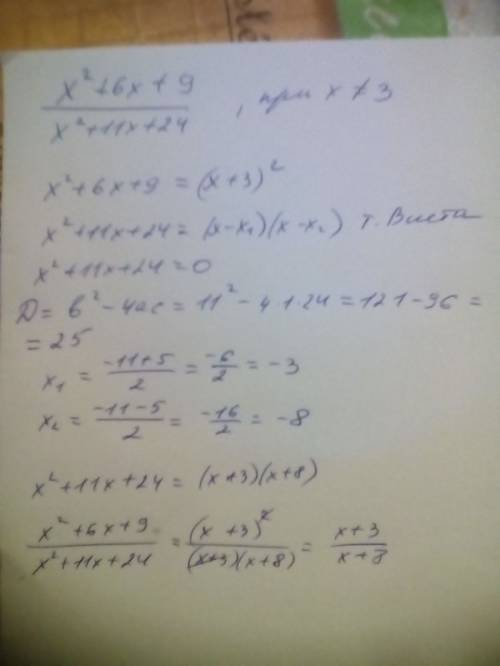 x² + 6x + 9 / x² + 11x + 24 , при x ≠ 3
x² + 6x + 9 = (x + 3)²
x² + 11x + 24 = (x - x₁)(x - x₂) т. Виета
x² + 11x + 24 = 0
D = b² - 4ac = 11² - 4·1·24 = 121 - 96 =
= 25
x₁ = -11+5 / 2 = -6 / 2 = -3
x₂ = -11-5 / 2 = -16 / 2 = -8
x² + 11x + 24 = (x+3)(x+8)
x² + 6x + 9 / x² + 11x + 24 = (x + 3)² / (x+3)(x+8) = x+3 / x+8